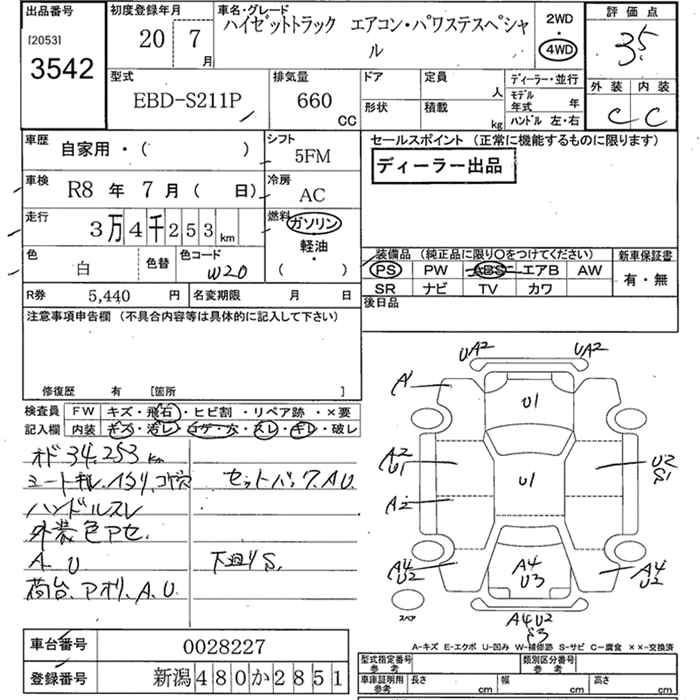 出品番号
[2053]
3542
初度登録年月
20 7
月
車名・グレード
ハイゼットトラック エアコン・パワステスペシャ
ル
2WD
・
4WD
評価点
3.5
外装 内装
C C
型式
EBD-S211P
排気量
660
CC
ドア
定員
人
形状
積載
kg
ディーラー・並行
モデル
年式 年
ハンドル 左・右
車歴
自家用・( )
シフト
5FM
セールスポイント (正常に機能するものに限ります)
ディーラー出品
車検
R8 年 7 月 ( 日)
冷房
AC
走行
3万4千253 km
燃料
ガソリン
軽油・
( )
色
白
色替
色コード
W20
装備品 (純正品に限り〇をつけてください)
PS PW ABS エアB AW
SR ナビ TV カワ
新車保証書
有・無
R券 5,440 円
名変期限 月 日
後日品
注意事項申告欄 (不具合内容等は具体的に記入して下さい)
修復歴 有 [箇所 ]
検査員 FW キズ・飛石・ヒビ割・リペア跡・×要
記入欄 内装 キズ・汚レ・コゲ・穴・スレ・キレ・破レ
オド 34,253 km
シートキレ、ハタリ、コゲ穴 セットバック.A.U
ハンドルスレ
外装色アセ.
A. U 下廻りS.
荷台、アオリ、A、U
UA2 UA2
A1
U1
A2
U1
U1
U2
S1
A2
A4
U2
A4
U3
A4
U2
スペア
A4U2
S3
A-キズ E-エクボ U-凹み W-補修跡 S-サビ C-腐食 ××-交換済
車台番号 0028227
登録番号 新潟480か2851
型式指定番号
参考
類別区分番号
参考
車庫証明用
参考
長さ cm
幅 cm
高さ cm